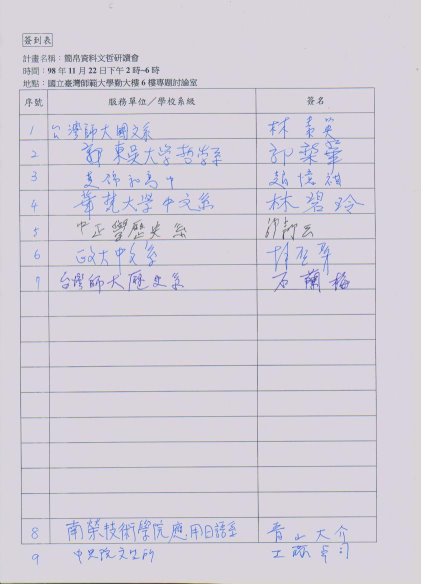 簽到表
計畫名稱：簡帛資料文哲研讀會
時間：98年11月22日下午2時~6時
地點：國立臺灣師範大學勤大樓6樓專題討論室
序號 服務單位／學校系級 簽名
1 台灣師大國文系 林素英
2 東吳大學哲學系 郭梨華
3
4 華梵大學中文系 林碧玲
5 中正 歷史系
6 政大中文系
7 台灣師大歷史系 石蘭梅
8 南榮技術學院應用日語系 青山大介
9 中央院文哲所